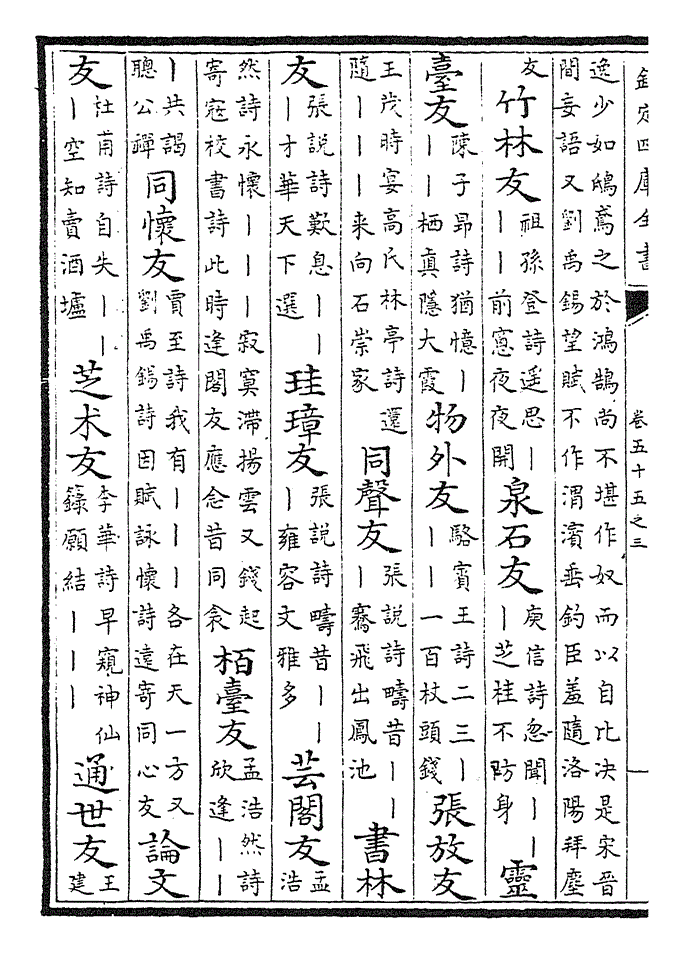 欽定四庫全書 卷五十五之三 一
逸少如鴟鳶之於鴻鵠尚不堪作奴而以自比决是宋晉
間妄語又劉禹錫望賦不作渭濱垂釣臣羞隨洛陽拜塵
友 竹林友 祖孫登詩遥思丨丨丨前窻夜夜開 泉石友 庾信詩忽聞丨丨丨芝桂不防身 靈
臺友 陳子昂詩猶憶丨丨丨栖真隱大霞 物外友 駱賓王詩二三丨丨丨一百杖頭錢 張放友
王茂時宴高氏林亭詩還隨丨丨丨来向石崇家 同聲友 張說詩疇昔丨丨丨騫飛出鳳池 書林
友 張說詩歎息丨丨丨才華天下選 珪璋友 張說詩疇昔丨丨丨雍容文雅多 芸閣友 孟浩
然詩永懷丨丨丨寂寞滯揚雲又錢起寄宼校書詩此時逢閣友應念昔同衾 栢臺友 孟浩然詩欣逢丨丨
丨共謁聰公禪 同懷友 賈至詩我有丨丨丨各在天一方又劉禹錫詩因賦詠懷詩遠寄同心友 論文
友 杜甫詩自失丨丨丨空知賣酒壚 芝术友 李華詩早窺神仙籙願結丨丨丨 通世友 王建